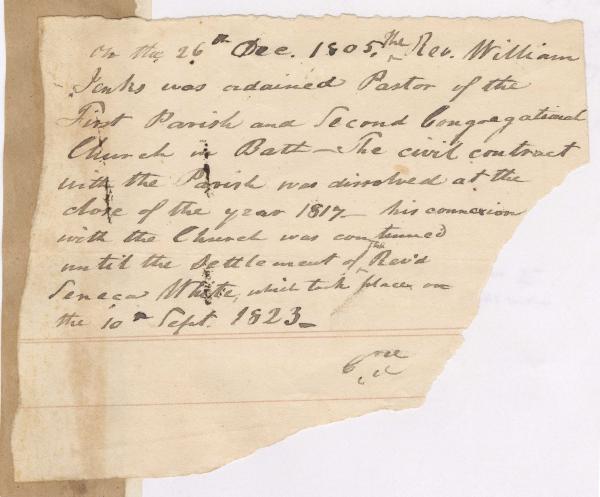 On the 26th Dec. 1805, the Rev. William
Jenks was ordained Pastor of the
First Parish and Second Congregational
Church in Bath — The civil contract
with the Parish was dissolved at the
close of the year 1817 — his connexion
with the Church was continued
until the settlement of the Rev'd
Seneca White, which took place on
the 10th Sept. 1823 —